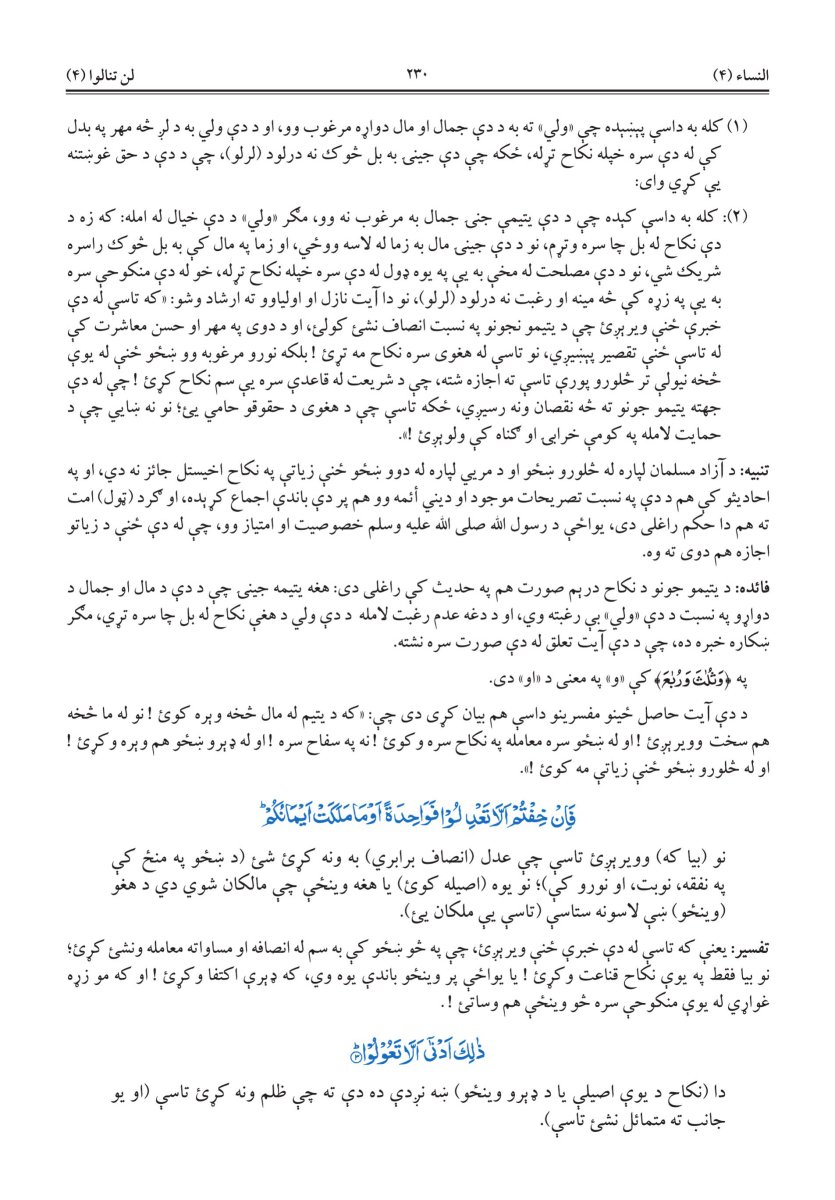 النساء (۴) ۲۳۰ لن تنالوا (۴)
(۱) كله به داسې پېښېده چې «ولي» ته به د دې جمال او مال دواړه مرغوب وو، او د دې ولي به د لږ څه مهر په بدل
كې له دې سره خپله نكاح تړله، ځكه چې دې جينۍ به بل څوك نه درلود (لرلو)، چې د دې د حق غوښتنه
يې كړې واى:
(۲): كله به داسې كېده چې د دې يتيمې جنۍ جمال به مرغوب نه وو، مګر «ولي» د دې خيال له امله: كه زه د
دې نكاح له بل چا سره وتړم، نو د دې جينۍ مال به زما له لاسه ووځي، او زما په مال كې به بل څوك راسره
شريك شي، نو د دې مصلحت له مخې به يې په يوه ډول له دې سره خپله نكاح تړله، خو له دې منكوحې سره
به يې په زړه كې څه مينه او رغبت نه درلود (لرلو)، نو دا آيت نازل او اولياوو ته ارشاد وشو: «كه تاسې له دې
خبرې ځنې ويرېږئ چې د يتيمو نجونو په نسبت انصاف نشئ كولئ، او د دوى په مهر او حسن معاشرت كې
له تاسې ځنې تقصير پېښيږي، نو تاسې له هغوى سره نكاح مه تړئ ! بلكه نورو مرغوبه وو ښځو ځنې له يوې
څخه نيولې تر څلورو پورې تاسې ته اجازه شته، چې د شريعت له قاعدې سره يې سم نكاح كړئ ! چې له دې
جهته يتيمو جونو ته څه نقصان ونه رسيږي، ځكه تاسې چې د هغوى د حقوقو حامي يئ؛ نو نه ښايي چې د
حمايت لامله په كومې خرابۍ او ګناه كې ولوېږئ !».
تنبيه: د آزاد مسلمان لپاره له څلورو ښځو او د مريي لپاره له دوو ښځو ځنې زياتې په نكاح اخيستل جائز نه دي، او په
احاديثو كې هم د دې په نسبت تصريحات موجود او ديني أئمه وو هم پر دې باندې اجماع كړېده، او ګرد (ټول) امت
ته هم دا حكم راغلى دى، يواځې د رسول الله صلى الله عليه وسلم خصوصيت او امتياز وو، چې له دې ځنې د زياتو
اجازه هم دوى ته وه.
فائده: د يتيمو جونو د نكاح درېم صورت هم په حديث كې راغلى دى: هغه يتيمه جينۍ چې د دې د مال او جمال د
دواړو په نسبت د دې «ولي» بې رغبته وي، او د دغه عدم رغبت لامله د دې ولي د هغې نكاح له بل چا سره تړي، مګر
ښكاره خبره ده، چې د دې آيت تعلق له دې صورت سره نشته.
په ﴿وَثُلٰثَ وَرُبٰعَ﴾ كې «و» په معنى د «او» دى.
د دې آيت حاصل ځينو مفسرينو داسې هم بيان كړى دى چې: «كه د يتيم له مال څخه ويره كوئ ! نو له ما څخه
هم سخت وويرېږئ ! او له ښځو سره معامله په نكاح سره وكوئ ! نه په سفاح سره ! او له ډېرو ښځو هم ويره وكړئ !
او له څلورو ښځو ځنې زياتې مه كوئ !».
فَاِنْ خِفْتُمْ اَلَّا تَعْدِلُوْا فَوَاحِدَةً اَوْ مَا مَلَكَتْ اَيْمَانُكُمْ ؕ
نو (بيا كه) وويرېږئ تاسې چې عدل (انصاف برابري) به ونه كړئ شئ (د ښځو په منځ كې
په نفقه، نوبت، او نورو كې)؛ نو يوه (اصيله كوئ) يا هغه وينځې چې مالكان شوي دي د هغو
(وينځو) ښي لاسونه ستاسې (تاسې يې ملكان يئ).
تفسير: يعنې كه تاسې له دې خبرې ځنې ويرېږئ، چې په څو ښځو كې به سم له انصافه او مساواته معامله ونشئ كړئ؛
نو بيا فقط په يوې نكاح قناعت وكړئ ! يا يواځې پر وينځو باندې يوه وي، كه ډېرې اكتفا وكړئ ! او كه مو زړه
غواړي له يوې منكوحې سره څو وينځې هم وساتئ !.
ذٰلِكَ اَدْنٰۤى اَلَّا تَعُوْلُوْا ؕ ۳
دا (نكاح د يوې اصيلې يا د ډېرو وينځو) ښه نږدې ده دې ته چې ظلم ونه كړئ تاسې (او يو
جانب ته متمائل نشئ تاسې).